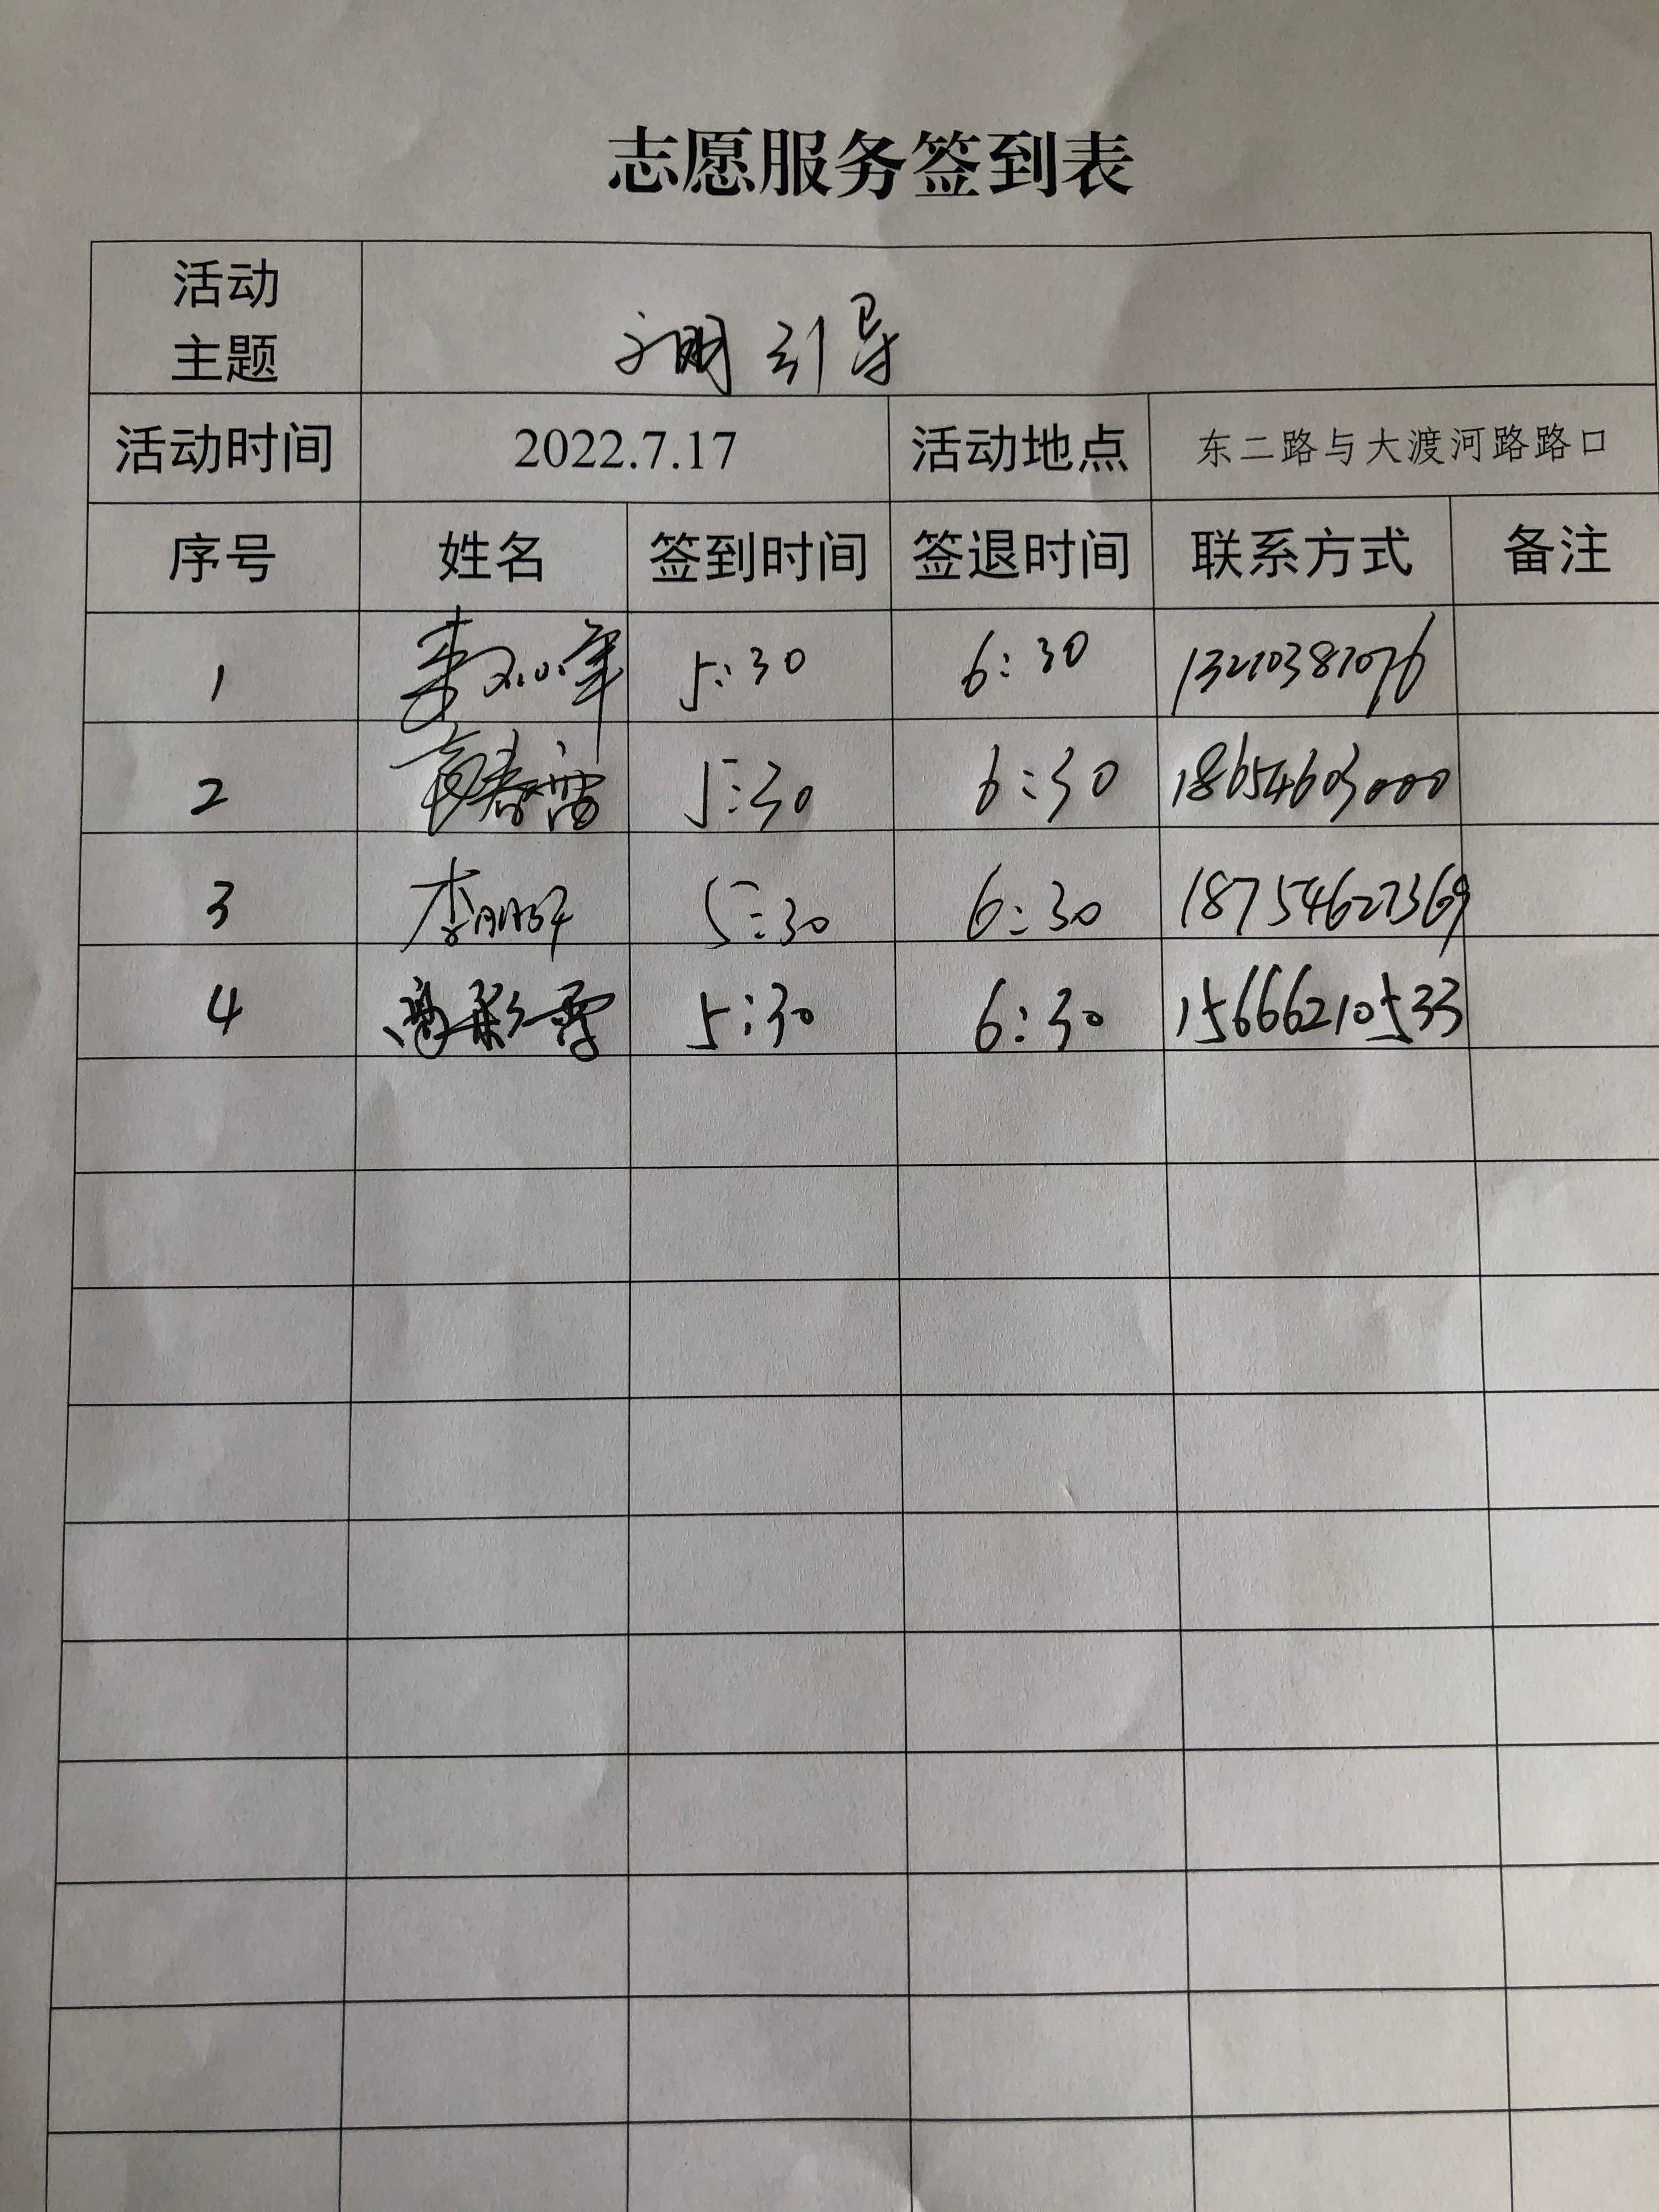 志愿服务签到表
活动
主题
文明引导
活动时间 2022.7.17 活动地点 东二路与大渡河路路口
序号 姓名 签到时间 签退时间 联系方式 备注
1 5:30 6:30 13210387076
2 高春雷 5:30 6:30 18654603000
3 李 5:30 6:30 18754627369
4 高彩雪 5:30 6:30 15666210533